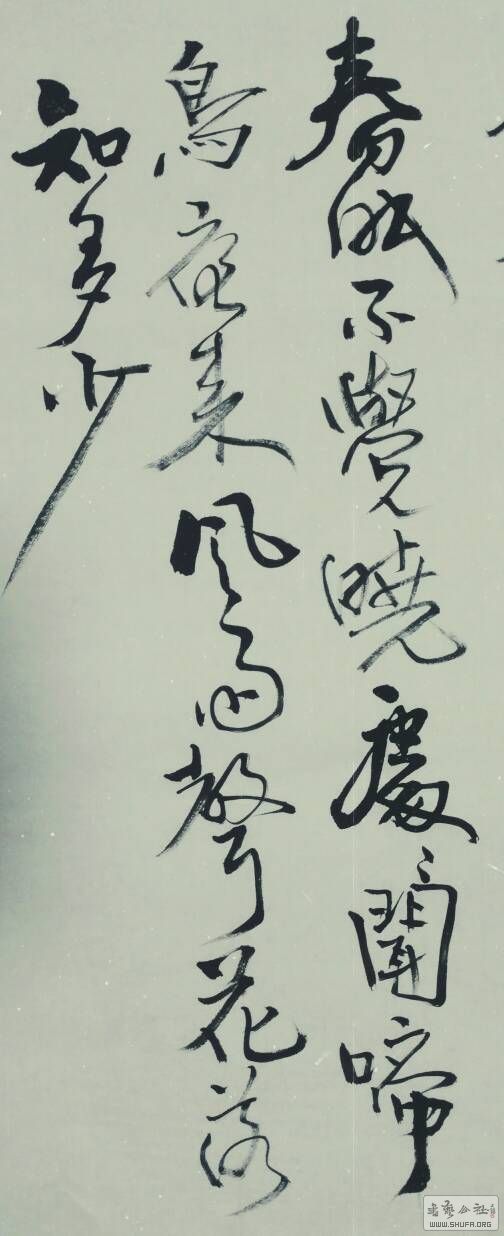 春眠不覺曉處〻聞啼
鳥夜来風雨聲花落
知多少
書藝公社
WWW.SHUFA.ORG